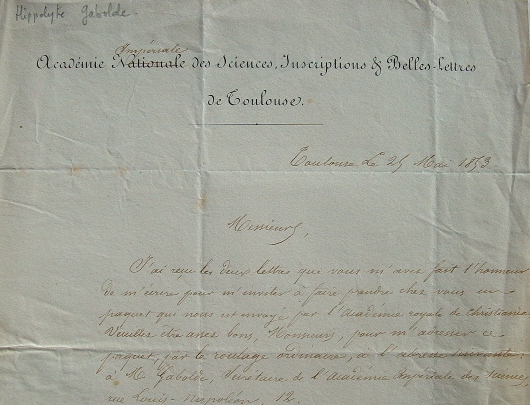 Hippolyte Gabolde.
Impériale
Académie Nationale des Sciences, Inscriptions & Belles-Lettres
de Toulouse.
Toulouse le 25 Mai 1853
Messieurs,
J'ai reçu les deux lettres que vous m'avez fait l'honneur
de m'écrire pour m'inviter à faire prendre chez vous un
paquet qui nous est envoyé par l'académie royale de Christiania
Veuillez être assez bons, Messieurs, pour m'adresser ce
paquet, par le roulage ordinaire, à l'adresse suivante :
à Mr Gabolde, Secrétaire de l'Académie Impériale des Sciences,
rue Louis-Napoléon, 12.